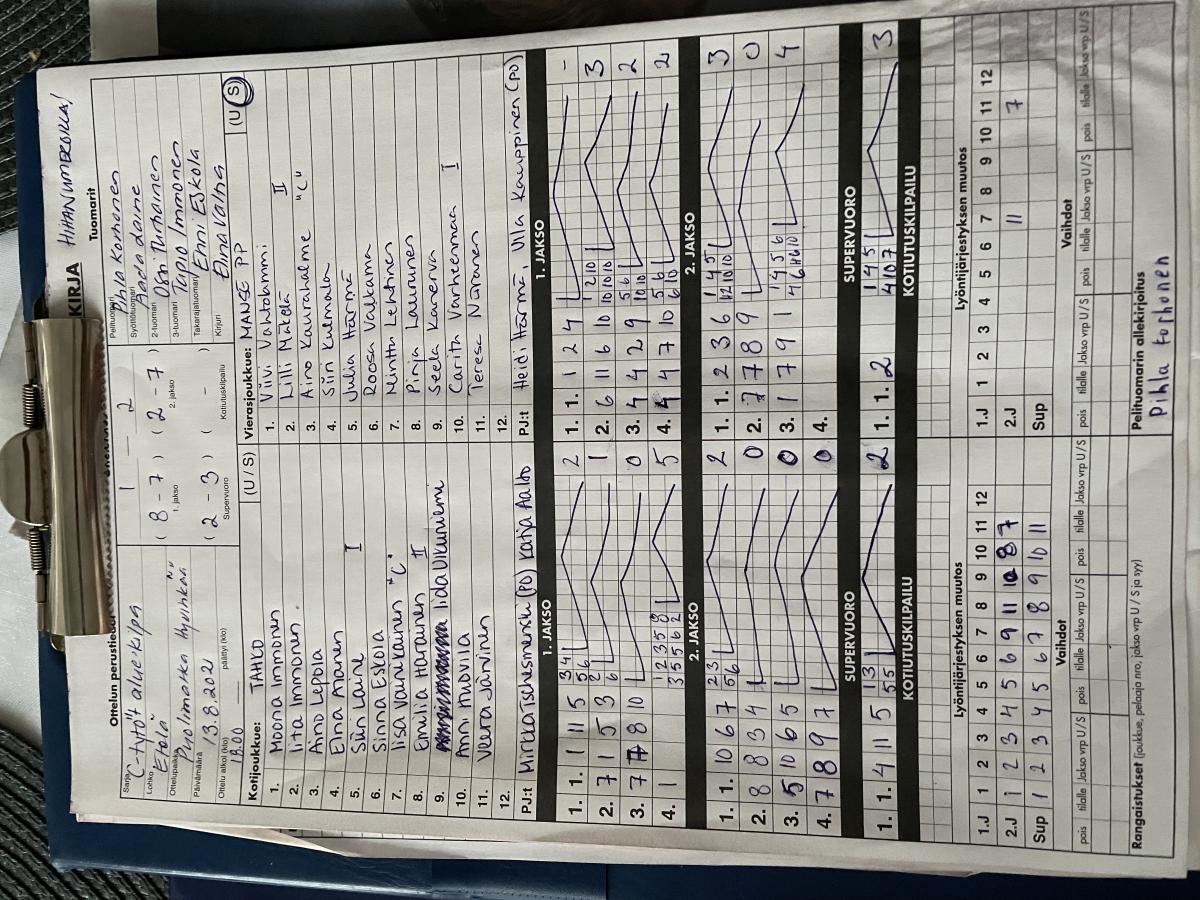 KIRJA HIHANUMEROILLA!
Ottelun perustiedot
Sarja C-tytöt aluekilpa
Lohko Etelä
Ottelupaikka Puolimatka Hyvinkää
Päivämäärä 13.8.2021
Ottelu alkoi (klo) 18.00 päättyi (klo)
1 – 2
( 8 – 7 ) ( 2 – 7 )
1. jakso 2. jakso
( 2 – 3 ) ( – )
Supervuoro Kotiutuskilpailu
Tuomarit
Pelituomari Pihla Korhonen
Syöttötuomari
2-tuomari
3-tuomari Tapio Immonen
Takarajatuomari Enni Eskola
Kirjuri Elina Valtia
Kotijoukkue: TAHKO (U / S)
1. Moona Immonen
2. Iita Immonen
3. Aino Lepola
4. Elna Ajanen
5. Siiri Laine I
6. Sinna Eskola
7. Iisa Vainikainen "C"
8. Emilia Haranen II
9. Iida Ulkuniemi
10. Anni Huovila
11. Veera Järvinen
12.
PJ:t Mirkka Tschesmenski (PO) Katja Aalto
Vierasjoukkue: MANSE PP (U S)
1. Viivi Vahtolammi
2. Lilli Mäkelä II
3. Aino Kaurahalme "C"
4. Siiri Kulmala
5. Julia Härmä
6. Roosa Valkama
7. Nenttu Lehtinen
8. Pinja Laurunen
9. Seela Kanerva
10. Carita Varheenmaa I
11. Teresa Näränen
12.
PJ:t Heidi Härmä, Ulla Kauppinen (PO)
1. JAKSO
1. 1. 1 11 5 3 4 5 6 2
2. 7 1 5 3 2 6 1
3. 7 7 8 10 0
4. 1 1 2 3 5 8 3 5 5 6 2 5
2. JAKSO
1. 1. 10 6 7 2 3 5 6 2
2. 8 8 3 4 0
3. 5 10 6 5 0
4. 7 8 9 7 0
SUPERVUORO
1. 1. 4 11 5 1 3 5 5 2
KOTIUTUSKILPAILU
1. JAKSO
1. 1. 1 2 4 -
2. 6 11 6 10 1 2 10 10 10 10 3
3. 4 4 2 9 5 6 10 10 2
4. 4 4 7 10 5 6 6 10 2
2. JAKSO
1. 1. 2 3 6 1 4 5 12 10 10 3
2. 7 7 8 9 0
3. 1 7 9 1 1 4 5 6 4 6 11 10 4
4.
SUPERVUORO
1. 1. 2 1 4 5 4 10 7 3
KOTIUTUSKILPAILU
Lyöntijärjestyksen muutos
1.J 1 2 3 4 5 6 7 8 9 10 11 12
2.J 1 2 3 4 5 6 9 11 10 8 7
Sup 1 2 3 4 5 6 7 8 9 10 11
Vaihdot
pois tilalle Jakso vrp U / S pois tilalle Jakso vrp U / S pois tilalle Jakso vrp U / S
Lyöntijärjestyksen muutos
1.J 1 2 3 4 5 6 7 8 9 10 11 12
2.J 11 7
Sup
Vaihdot
pois tilalle Jakso vrp U / S pois tilalle Jakso vrp U / S pois tilalle Jakso vrp U / S
Rangaistukset (joukkue, pelaaja nro, jakso vrp U / S ja syy)
Pelituomarin allekirjoitus
Pihla Korhonen